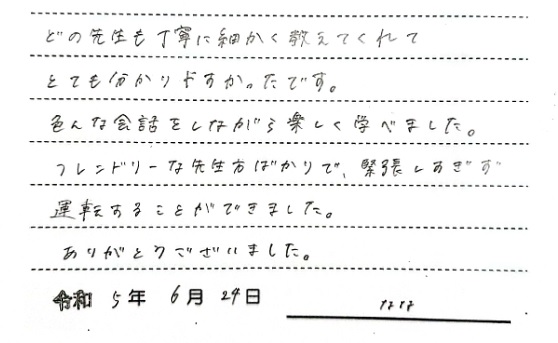 どの先生も丁寧に細かく教えてくれて
とても分かりやすかったです。
色んな会話をしながら楽しく学べました。
フレンドリーな先生方ばかりで、緊張しすぎず
運転することができました。
ありがとうございました。
令和 5年 6月 24日 なな